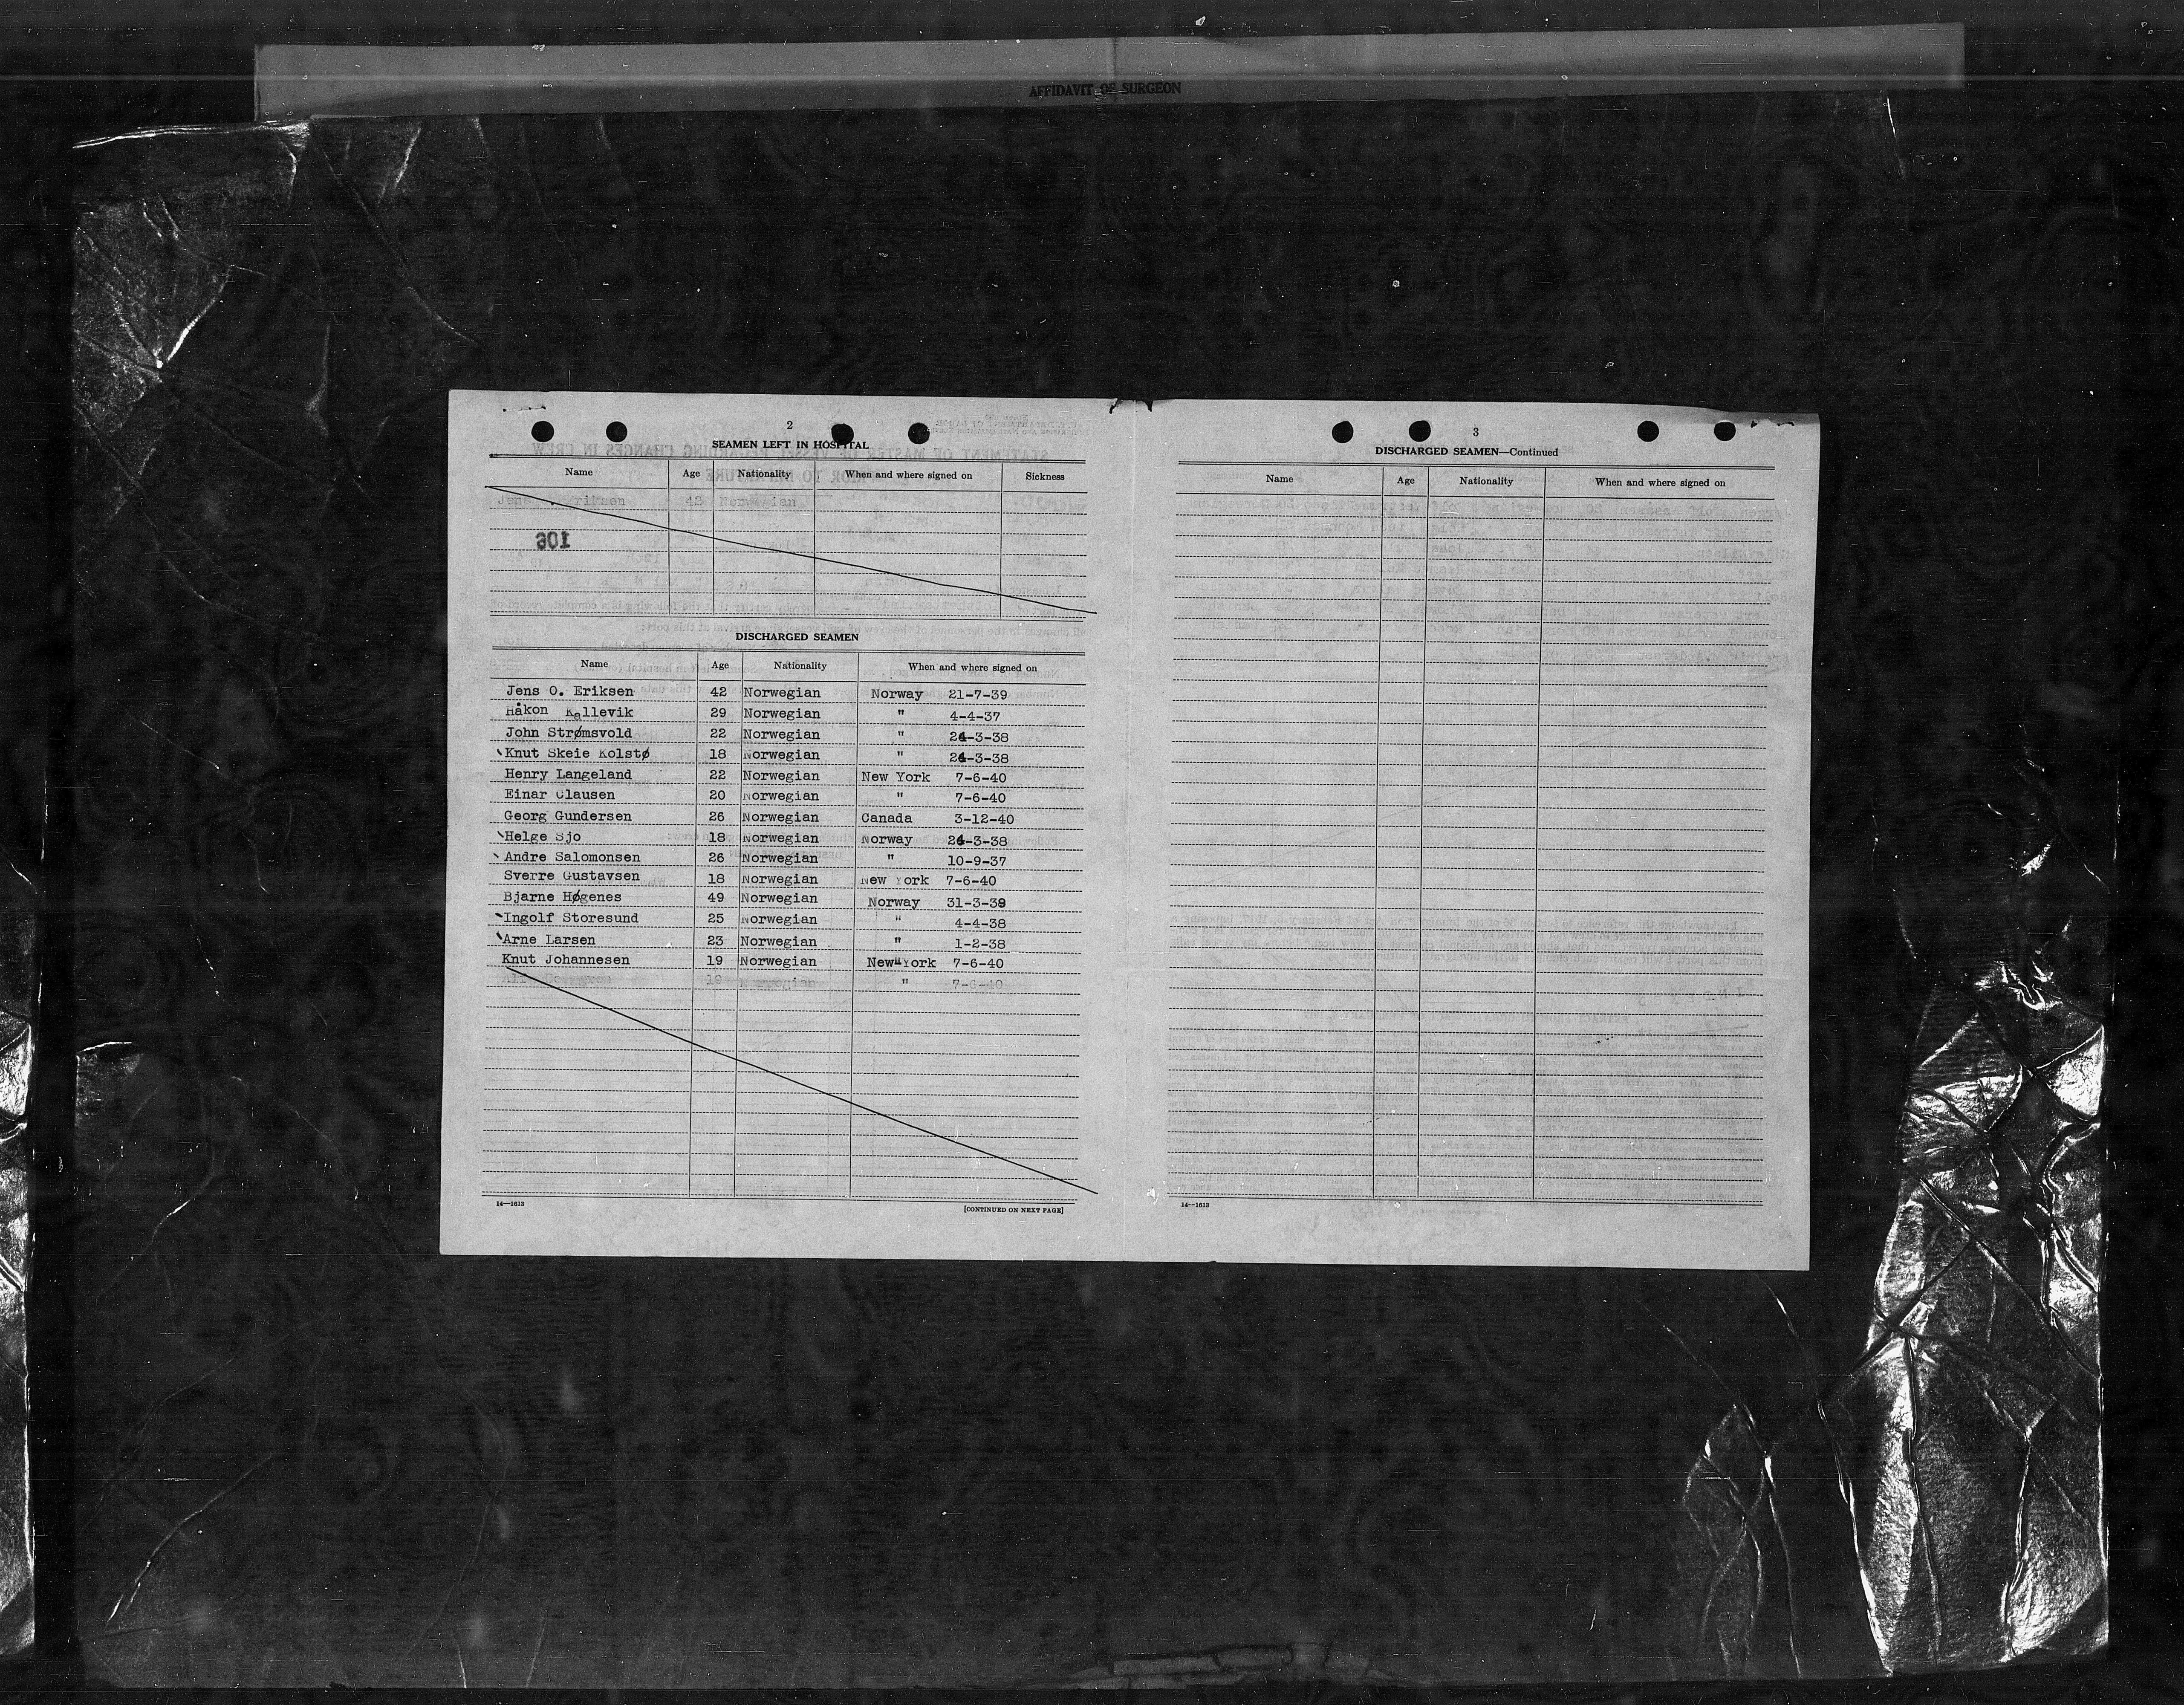 AFFIDAVIT OF SURGEON
2
SEAMEN LEFT IN HOSPITAL
Name Age Nationality When and where signed on Sickness
Eriksen 42 Norwegian
DISCHARGED SEAMEN
Name Age Nationality When and where signed on
Jens O. Eriksen 42 Norwegian Norway 21-7-39
Håkon Kallevik 29 Norwegian " 4-4-37
John Strømsvold 22 Norwegian " 24-3-38
Knut Skeie Kolstø 18 Norwegian " 24-3-38
Henry Langeland 22 Norwegian New York 7-6-40
Einar Clausen 20 Norwegian " 7-6-40
Georg Gundersen 26 Norwegian Canada 3-12-40
Helge Sjo 18 Norwegian Norway 24-3-38
Andre Salomonsen 26 Norwegian " 10-9-37
Sverre Gustavsen 18 Norwegian New York 7-6-40
Bjarne Høgenes 49 Norwegian Norway 31-3-39
Ingolf Storesund 25 Norwegian " 4-4-38
Arne Larsen 23 Norwegian " 1-2-38
Knut Johannesen 19 Norwegian New York 7-6-40
19 Norwegian " 7-6-40
14—1613
[CONTINUED ON NEXT PAGE]
3
DISCHARGED SEAMEN—Continued
Name Age Nationality When and where signed on
14—1613